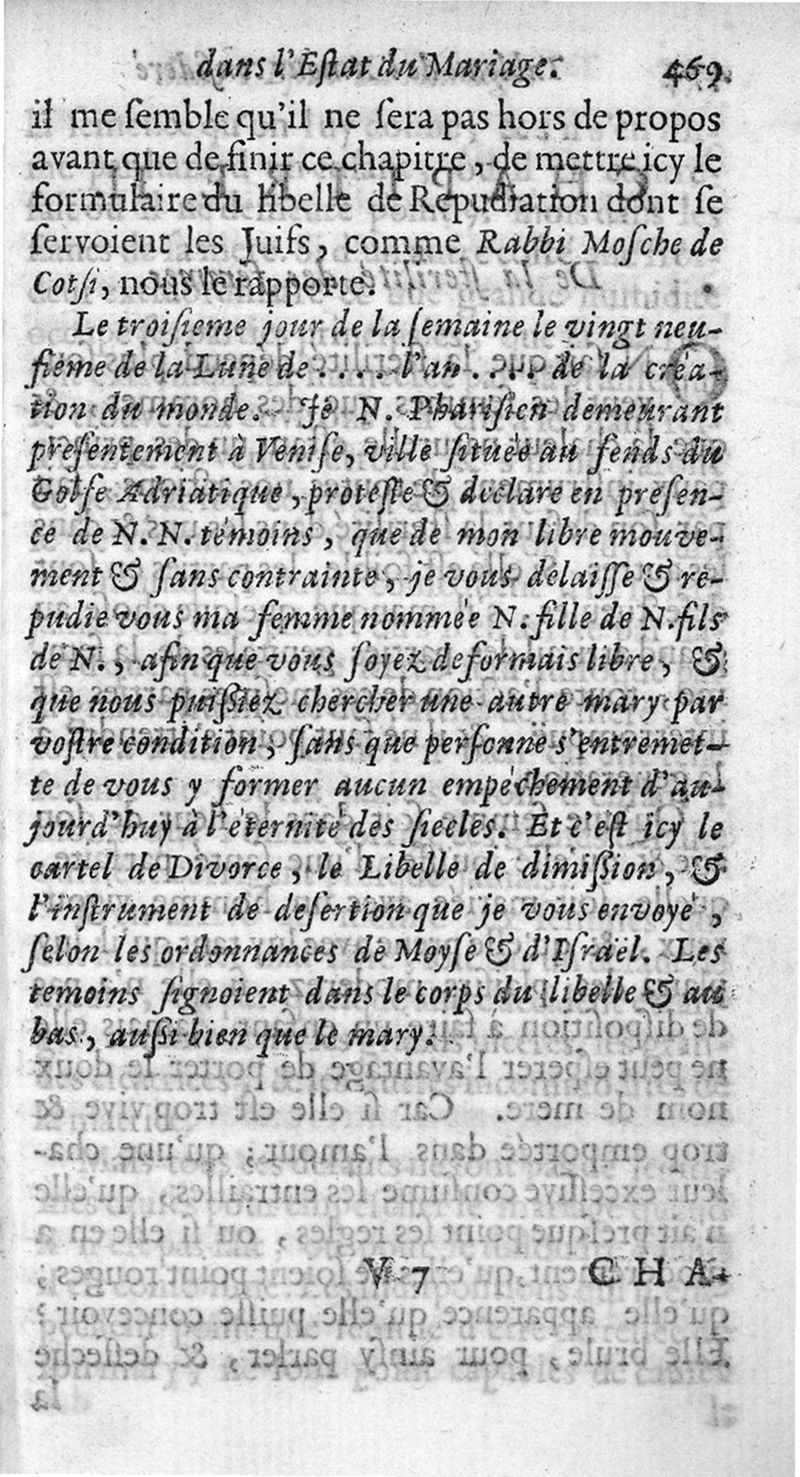 dans l'Eſtat du Mariage. 469.
il me ſemble qu'il ne ſera pas hors de propos
avant que de finir ce chapitre, de mettre icy le
formulaire du libelle de Repudiation dont ſe
ſervoient les Juifs, comme Rabbi Moſche de
Cotſi, nous le rapporte.
Le troiſieme jour de la ſemaine le vingt neu-
fiéme de la Lune de .... l'an .... de la créa-
tion du monde. Je N. Phariſien demeurant
preſentement à Veniſe, ville ſituée au fends du
Golfe Adriatique, proteſte & declare en preſen-
ce de N. N. témoins, que de mon libre mouve-
ment & ſans contrainte, je vous delaiſſe & re-
pudie vous ma femme nommée N. fille de N. fils
de N., afin que vous ſoyez deformais libre, &
que nous puiſſiez chercher une autre mary par
voſtre condition, ſans que perſonne s'entremet-
te de vous y former aucun empéchement d'au-
jourd'huy à l'éternité des ſiecles. Et c'eſt icy le
cartel de Divorce, le Libelle de dimiſſion, &
l'inſtrument de deſertion que je vous envoyé,
ſelon les ordonnances de Moyſe & d'Iſraël. Les
temoins ſignoient dans le corps du libelle & au
bas, auſſi bien que le mary.
V 7 CHA-